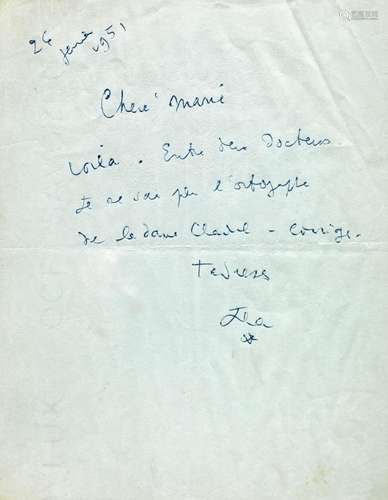 26
1951
Cheré marie
voila. Entre deux Docteurs.
Je ne sais pas l'ortografe
de la dame Claudel - corrige.
Tendresses